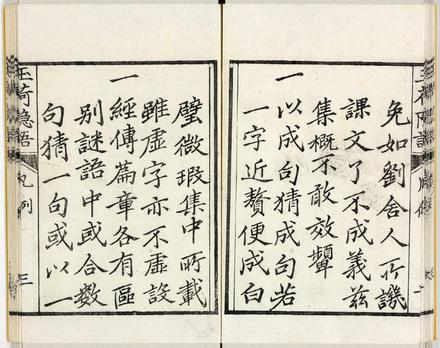 免如劉舍人所譏
課文了不成義茲
集概不敢效顰
一以成句猜成句若
一字近贅便成白
璧微瑕集中所載
雖虛字亦不虛設
一經傳篇章各有區
別謎語中或合數
句猜一句或以一
玉荷隱語 凡例 三